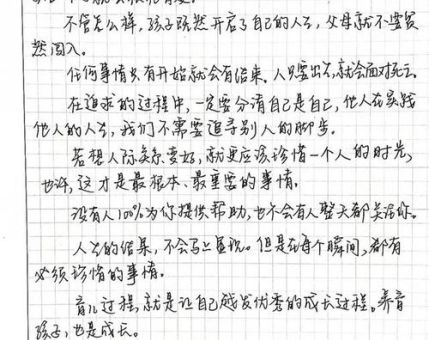 不管怎么样，孩子既然开启了自己的人生，父母就不要贸
然闯入。
任何事情只有开始就会有结束。人只要出生，就会面对死亡。
在追求的过程中，一定要分清自己是自己，他人在实践
他人的人生，我们不需要追寻别人的脚步。
若想人际关系变好，就更应该珍惜一个人的时光，
也许，这才是最根本、最重要的事情。
没有人100%为你提供帮助，也不会有人整天都关注你。
人生的结果，不会马上呈现。但是在每个瞬间，都有
必须珍惜的事情。
育儿过程，就是让自己越发优秀的成长过程。养育
孩子，也是成长。